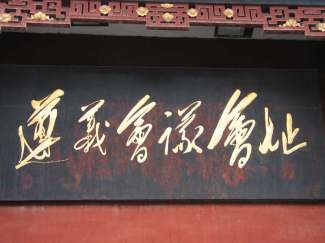 遵義會議會址